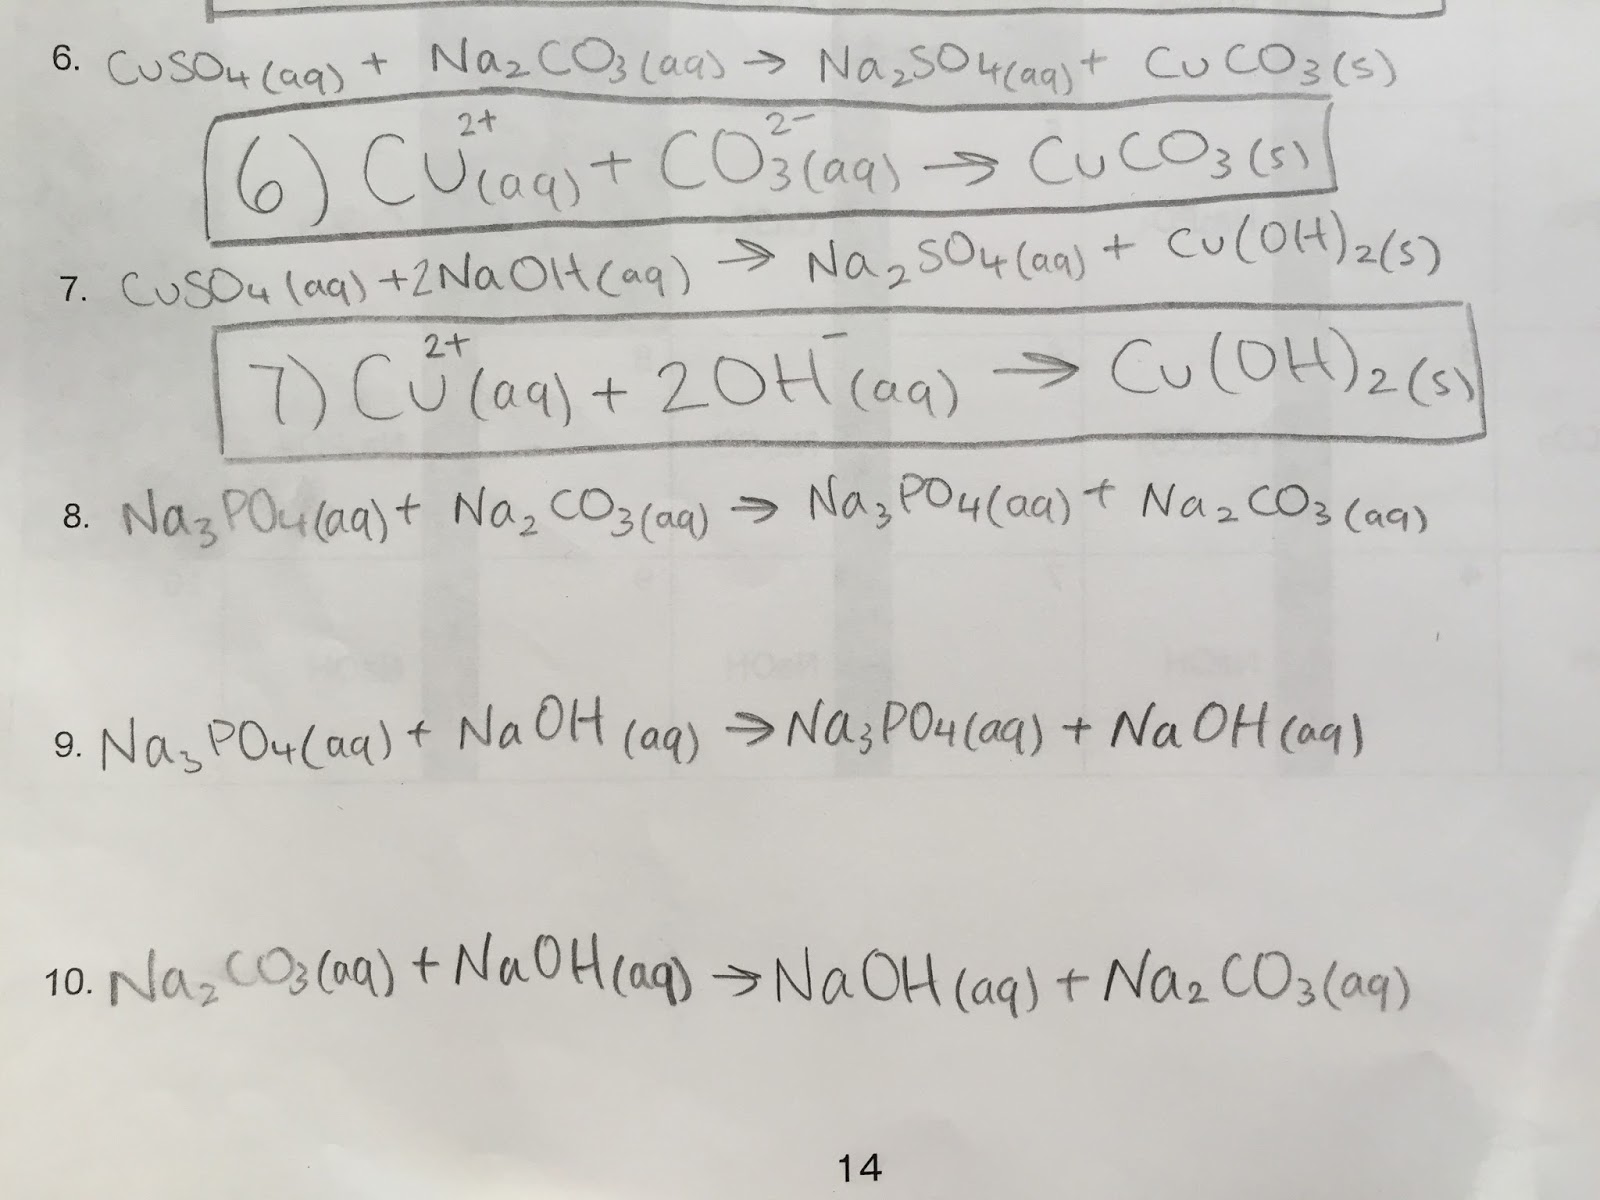 6. CuSO4(aq) + Na2CO3(aq) → Na2SO4(aq) + CuCO3(s)
6) Cu²⁺(aq) + CO3²⁻(aq) → CuCO3(s)
7. CuSO4(aq) + 2NaOH(aq) → Na2SO4(aq) + Cu(OH)2(s)
7) Cu²⁺(aq) + 2OH⁻(aq) → Cu(OH)2(s)
8. Na3PO4(aq) + Na2CO3(aq) → Na3PO4(aq) + Na2CO3(aq)
9. Na3PO4(aq) + NaOH(aq) → Na3PO4(aq) + NaOH(aq)
10. Na2CO3(aq) + NaOH(aq) → NaOH(aq) + Na2CO3(aq)
14